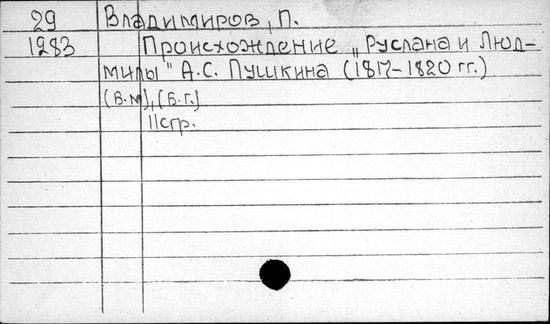 29 Владимиров, П.
1283 Происхождение „Руслана и Люд-
милы" А.С. Пушкина (1817-1820 гг.)
(Б.м), (Б.г.)
11стр.